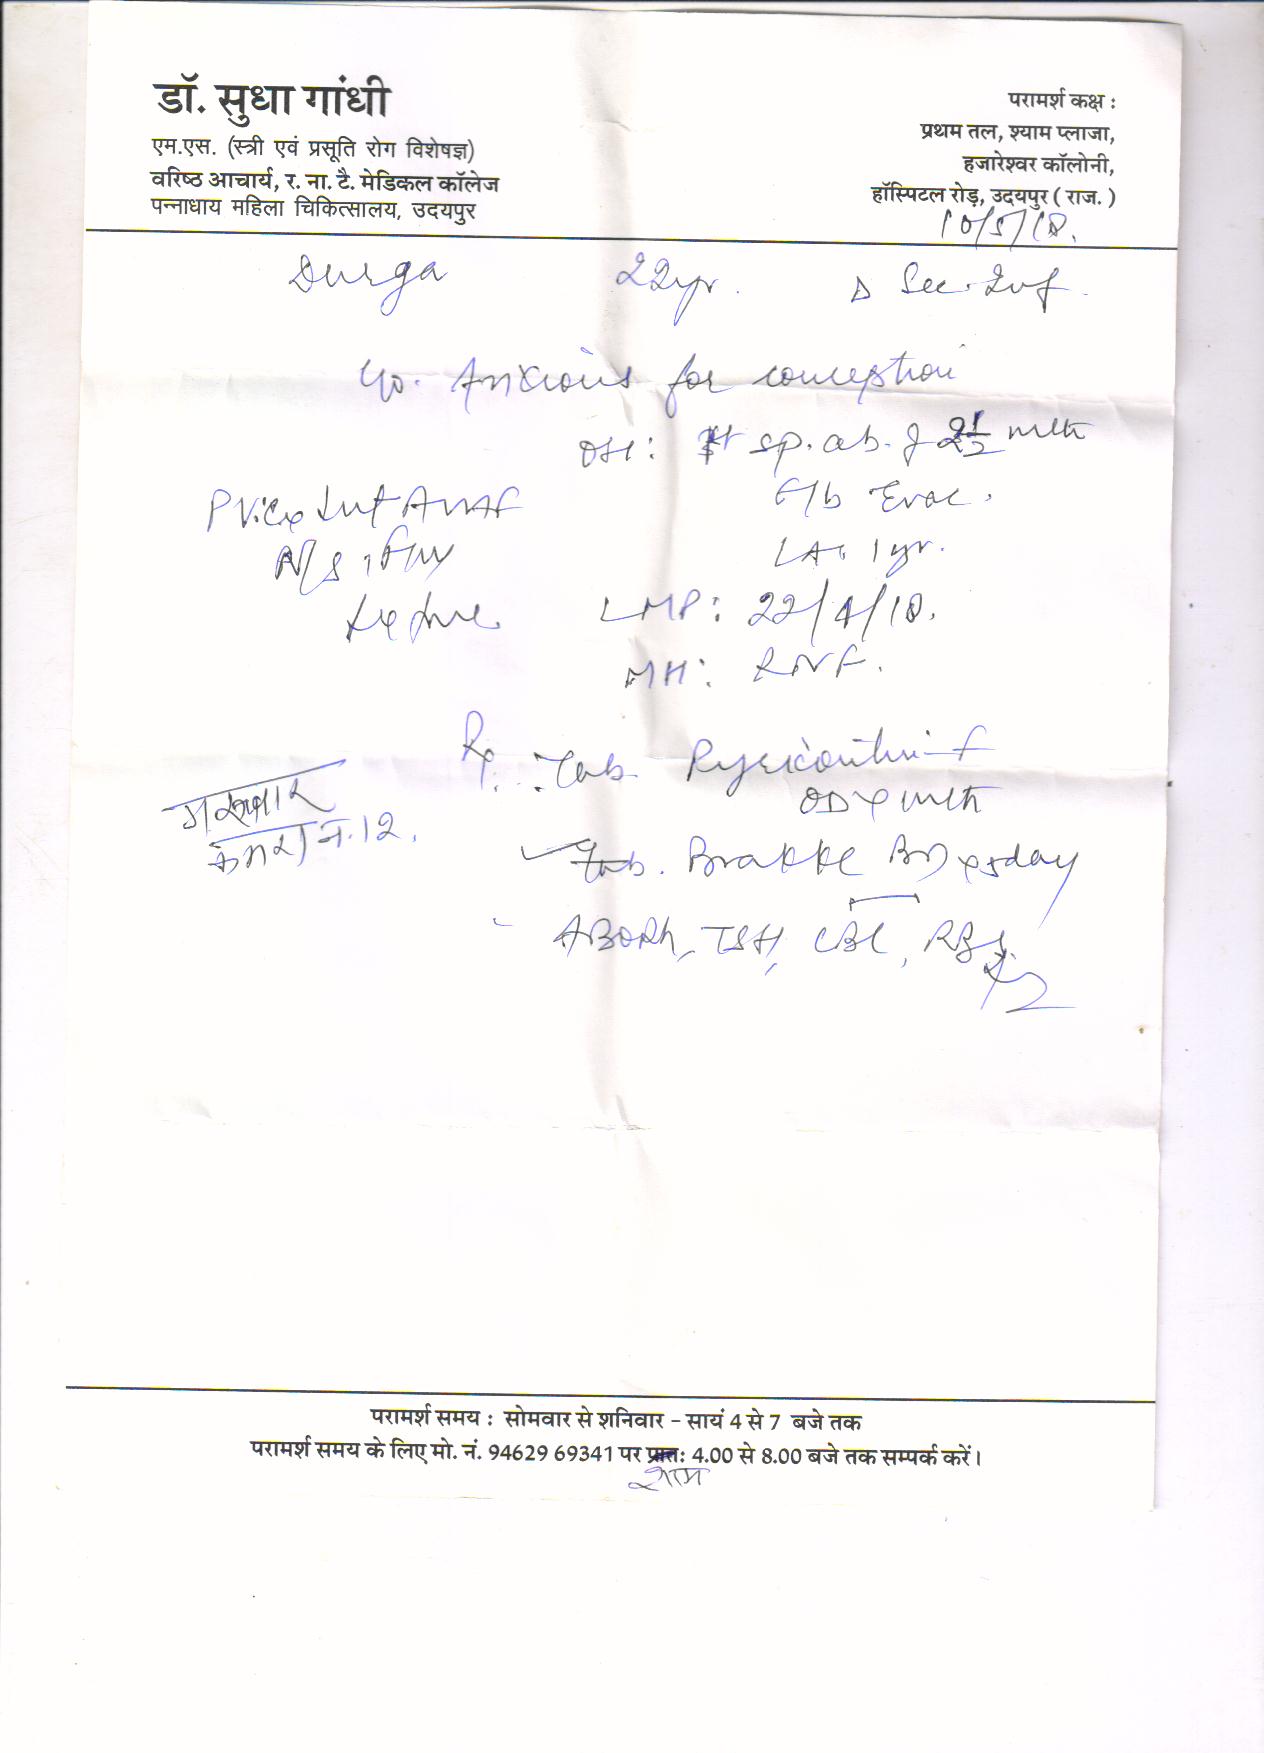 डॉ. सुधा गांधी
एम.एस. (स्त्री एवं प्रसूति रोग विशेषज्ञ)
वरिष्ठ आचार्य, र. ना. टै. मेडिकल कॉलेज
पन्नाधाय महिला चिकित्सालय, उदयपुर
परामर्श कक्ष :
प्रथम तल, श्याम प्लाजा,
हजारेश्वर कॉलोनी,
हॉस्पिटल रोड़, उदयपुर ( राज. )
10/5/18.
Durga 22yr. Δ Sec. Inf.
c/o. Anxious for conception
OH: sp. ab. of 2 1/2 mth
F/b Evac.
LA: 1 yr.
LMP: 22/4/18.
MH: RNF.
P/V: Cx AVAF
N/S
Rx. Tab.
OD x mth
Tab. BD x 5day
- ABORh, TSH, CBC, RBS.
कमरा न. 12.
परामर्श समय : सोमवार से शनिवार - सायं 4 से 7 बजे तक
परामर्श समय के लिए मो. नं. 94629 69341 पर प्रातः 4.00 से 8.00 बजे तक सम्पर्क करें।
शाम